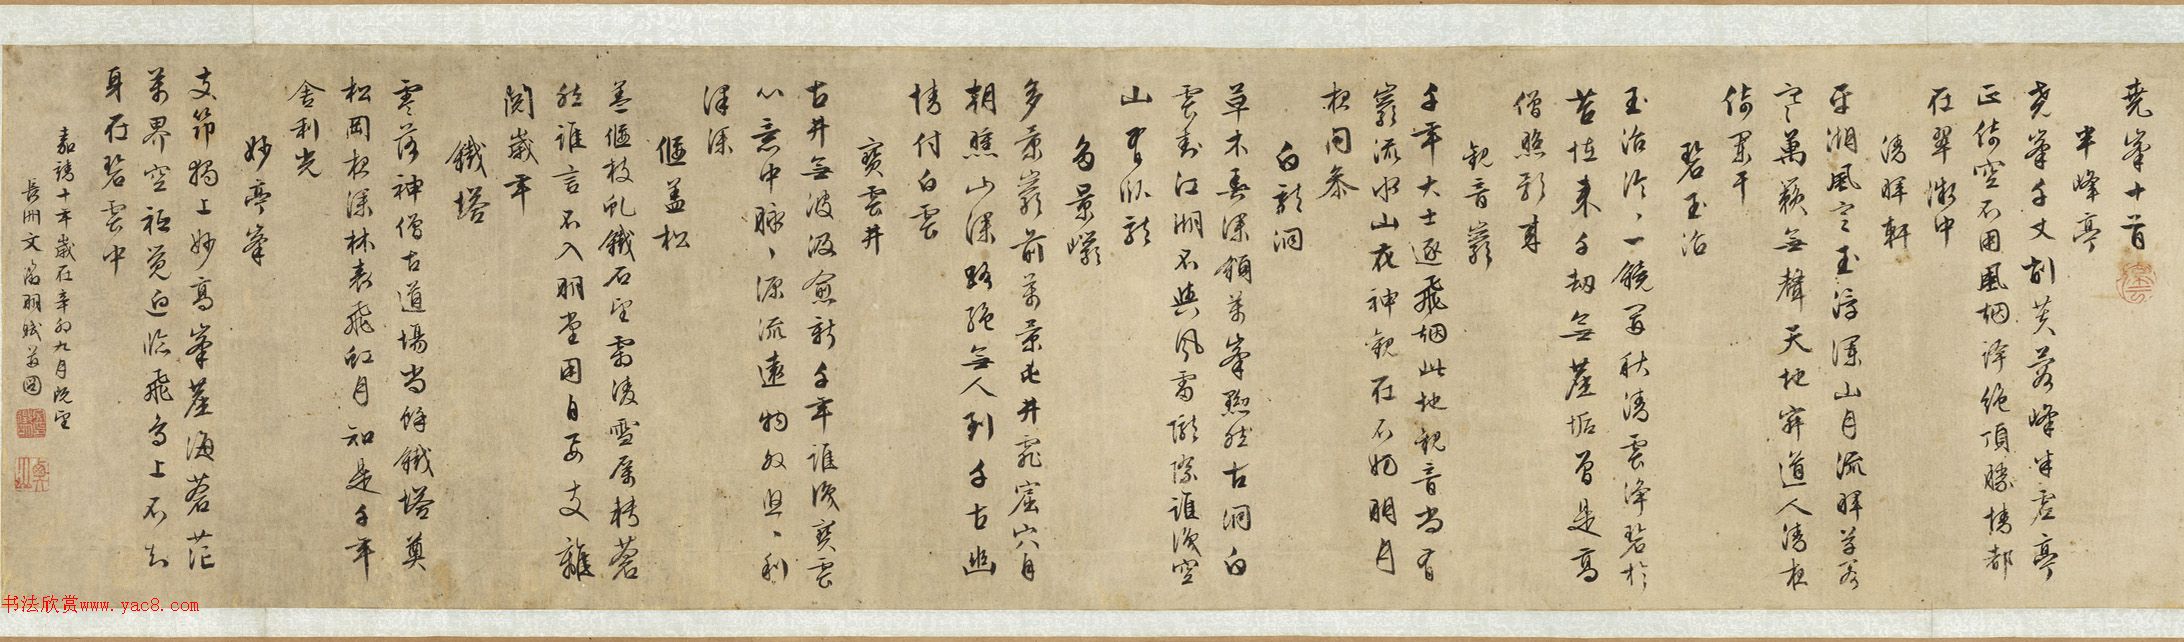 堯峯十首
半峰亭
堯峯千丈割芙蓉峰半危亭
正倚空不用風烟評絕頂勝情都
在翠微中
清暉軒
平湖風定玉浮瀾山月流暉草
定萬籟無聲天地寂道人清夜
倚闌干
碧玉沼
玉沼泠泠一鏡秋清雲淨碧於
苔恠來千劫無塵垢曾是高
僧照影來
觀音巖
千年大士逐飛烟此地觀音尚有
巖流水山花神觀在不妨明月
夜同參
白龍洞
草木春深鎖翠峯黝然古洞白
雲封江湖不與風雷隔誰識空
山有臥龍
多景巖
多景巖前萬景
朝曛山深路絕無人到千古幽
情付白雲
寶雲井
古井無波汲愈新千年誰浚寶雲
心意中脉脉源流遠物外
澤深
偃蓋松
蓋偃枝虬鐵石堅霜凌雪厲轉蒼
然誰言不入明堂用自要支離
閱歲年
鐵塔
零落神僧古道場尚餘鐵塔奠
松岡夜深林表飛虹月知是千年
舍利光
妙高峯
支筇獨上妙高峯塵海蒼茫
萬界空祗覺近臨飛鳥上不知
身在碧雲中
嘉靖十年歲在辛卯九月既望
長洲文徵明賦並圖
书法欣赏www.yac8.com